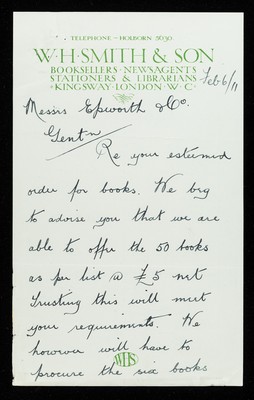 TELEPHONE - HOLBORN 5030.
W·H·SMITH & SON
BOOKSELLERS·NEWSAGENTS
STATIONERS & LIBRARIANS
·KINGSWAY·LONDON·W·C·
Feb 6/11
Messrs Epworth & Co.
Gentn
Re your esteemed
order for books. We beg
to advise you that we are
able to offer the 50 books
as per list @ £5 net
Trusting this will meet
your requirements. We
however will have to
WHS
procure the six books